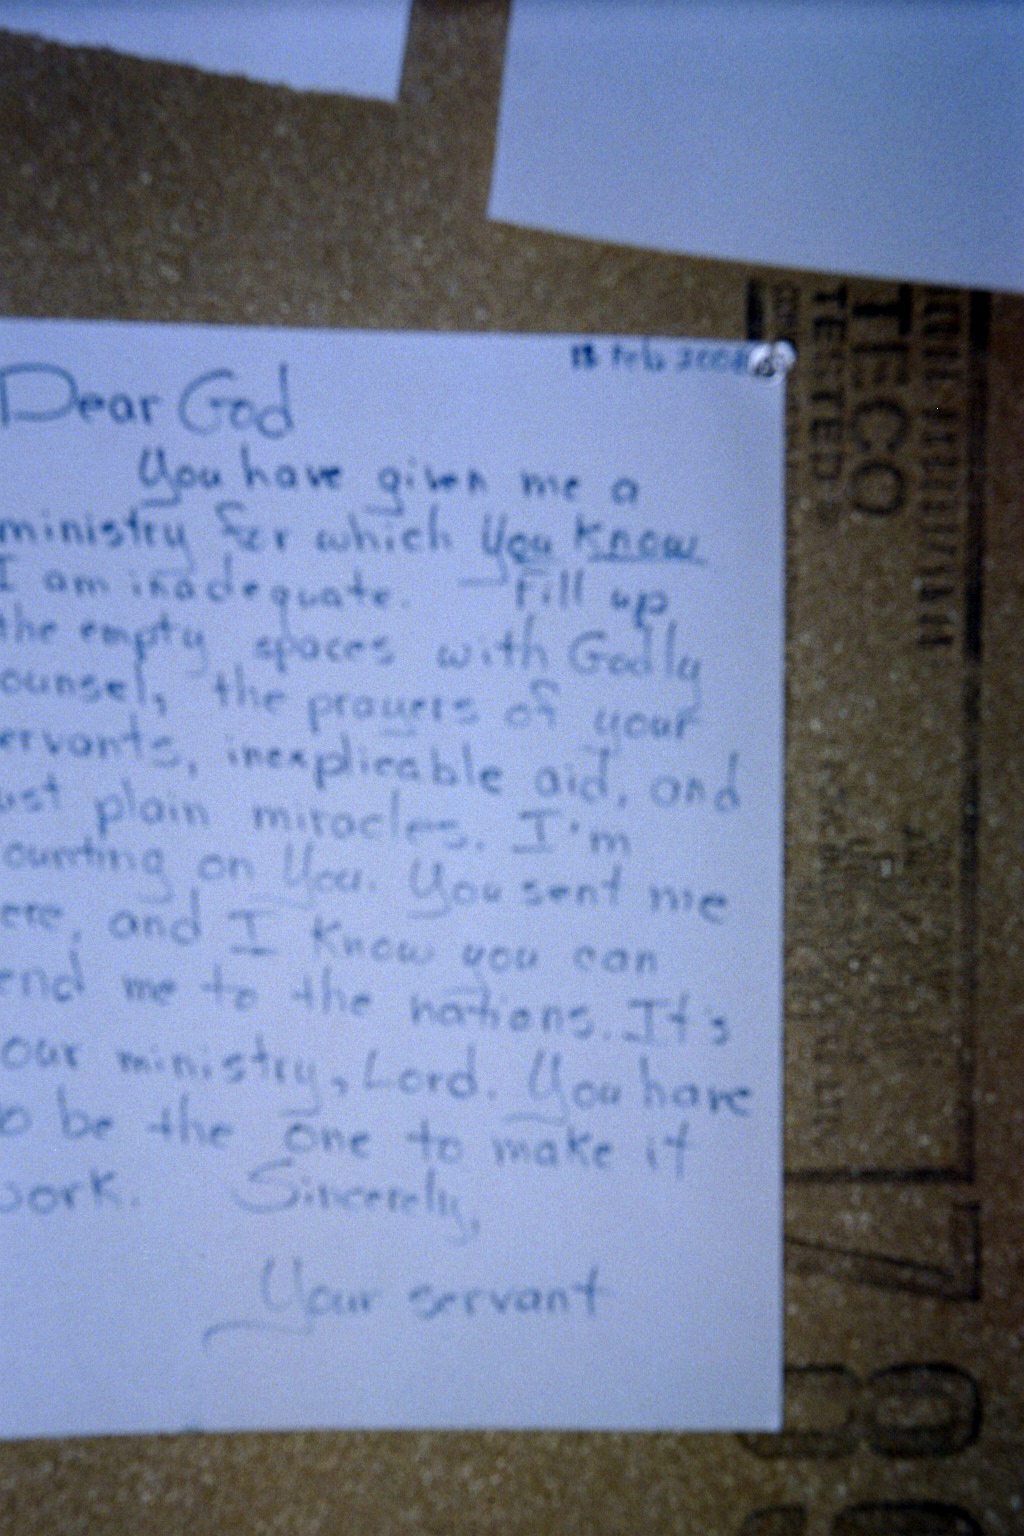 18 Feb 2008
Dear God
You have given me a
ministry for which You Know
I am inadequate. Fill up
the empty spaces with Godly
ounsel, the prayers of your
ervants, inexplicable aid, and
ust plain miracles. I'm
ounting on You. You sent me
ere, and I know you can
end me to the nations. It's
our ministry, Lord. You have
o be the one to make it
ork. Sincerely,
Your servant
TECO
TESTED
7